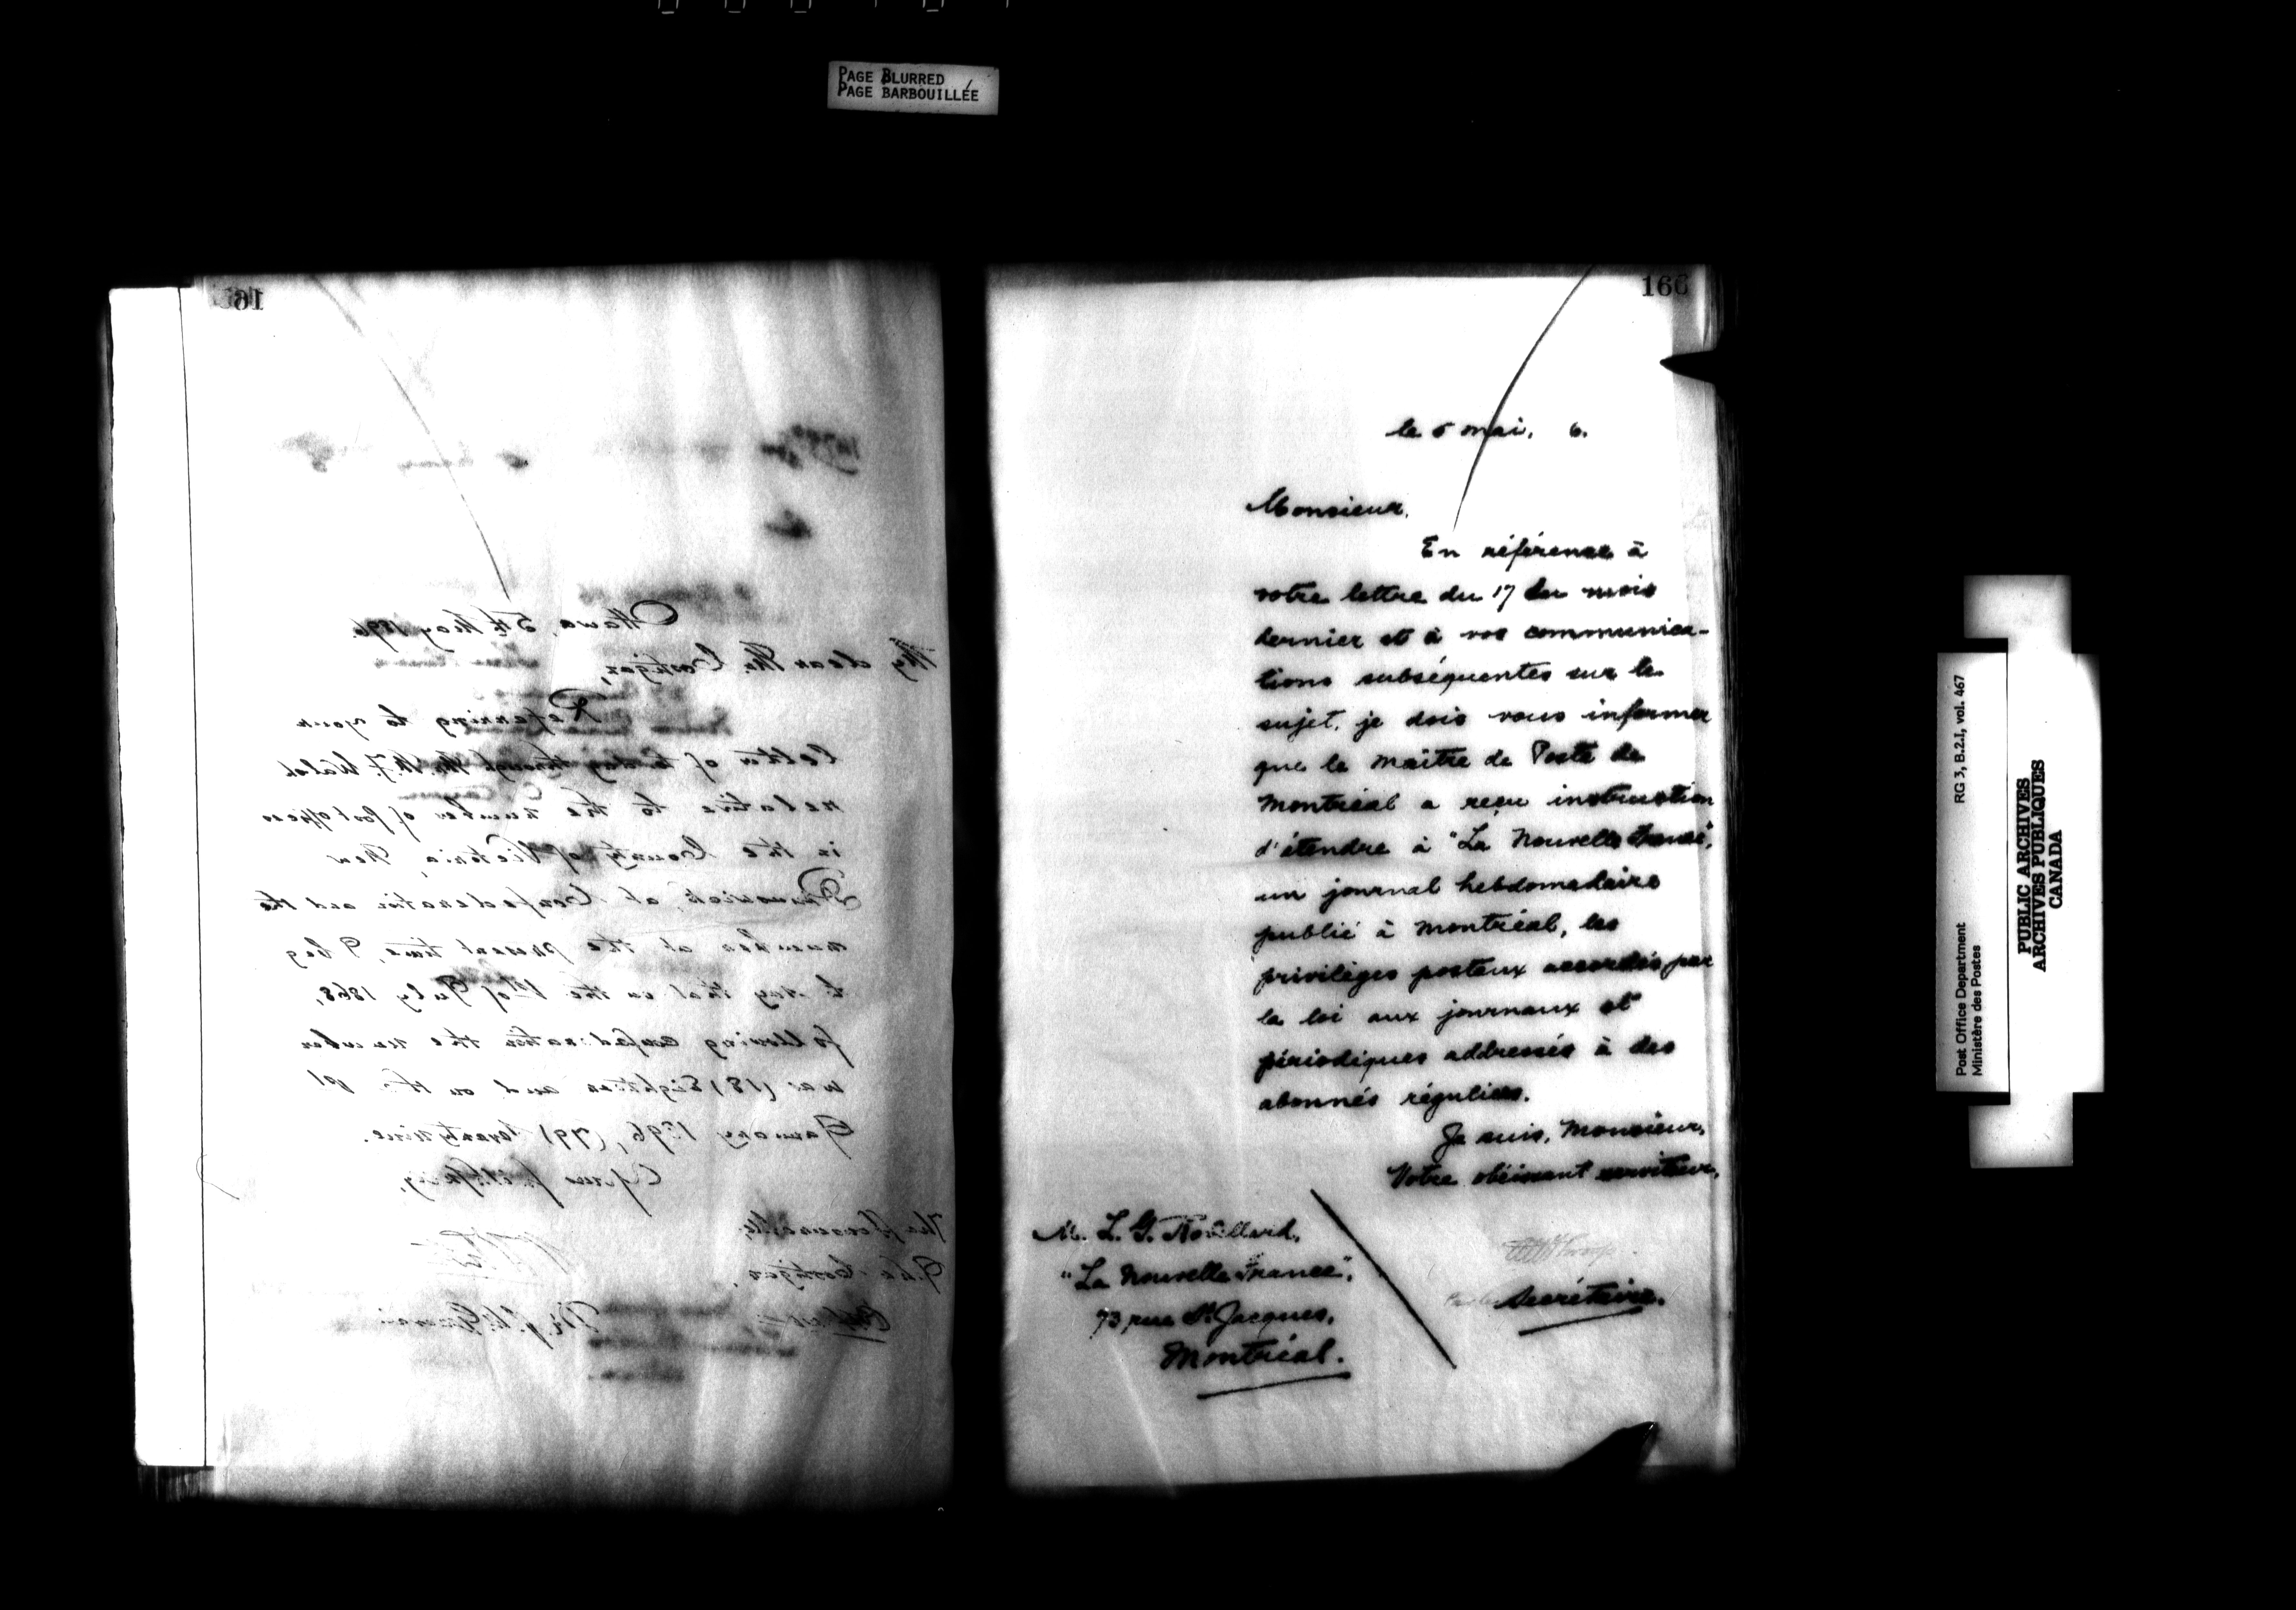 PAGE BLURRED
PAGE BARBOUILLÉE
Ottawa, 5th May 1896.
My dear Mr. Costigan,
Referring to your
letter of through Mr. M.J. Walsh
relative to the number of post offices
in the County of Victoria, New
Brunswick, at Confederation and the
number at the present time, I beg
to say that on the 1st of July 1868,
following confederation the number
was (18) Eighteen and on the 1st
January 1896, (79) Seventy nine.
Yours faithfully,
The Honourable,
John Costigan,
166
le 5 mai, 6.
Monsieur,
En référence à
votre lettre du 17 du mois
dernier et à vos communica-
tions subséquentes sur le
sujet, je dois vous informer
que le maître de Poste de
Montréal a reçu instruction
d'étendre à "La Nouvelle France",
un journal hebdomadaire
publié à Montréal, les
privilèges postaux accordés par
la loi aux journaux et
périodiques addressés à des
abonnés réguliers.
Je suis, Monsieur,
Votre obéissant serviteur,
Secrétaire.
M. L. G. Robillard,
"La Nouvelle France",
73 rue St Jacques,
Montréal.
RG 3, B.2.I, vol. 467
Post Office Department
Ministère des Postes
PUBLIC ARCHIVES
ARCHIVES PUBLIQUES
CANADA